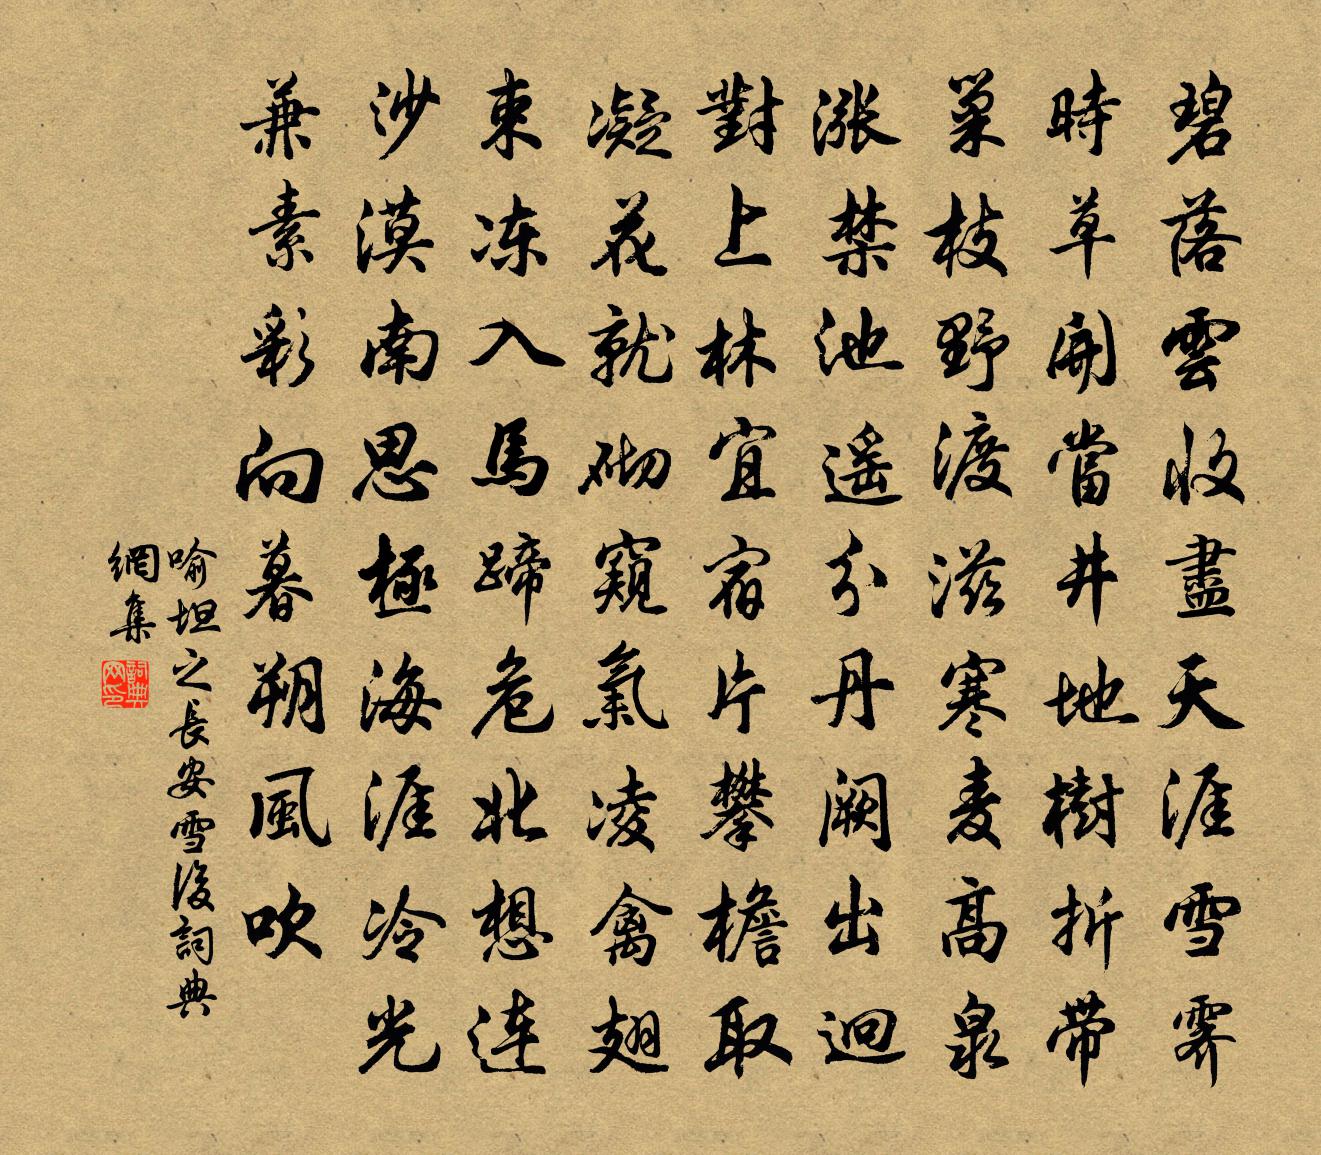 碧落雲收盡天涯雪霽
時草開當井地樹折带
巢枝野渡滋寒麦高泉
漲禁池遥分丹阙出迥
對上林宜宿片攀檐取
凝花就砌窺氣凌禽翅
束冻入馬蹄危北想连
沙漠南思極海涯冷光
兼素彩向暮朔風吹
喻坦之長安雪後詞典
網集
詞典
网印